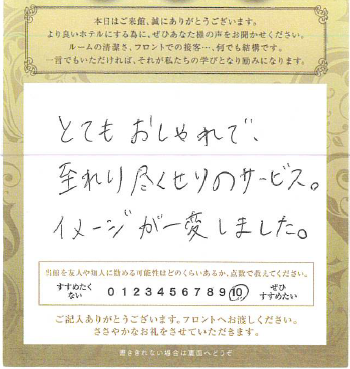 本日はご来館、誠にありがとうございます。
より良いホテルにする為に、ぜひあなた様の声をお聞かせください。
ルームの清潔さ、フロントでの接客…、何でも結構です。
一言でもいただければ、それが私たちの学びとなり励みになります。
とても おしゃれで、
至れり尽くせりのサービス。
イメージが一変しました。
当館を友人や知人に勧める可能性はどのくらいあるか、点数で教えてください。
すすめたくない 0 1 2 3 4 5 6 7 8 9 10 ぜひすすめたい
ご記入ありがとうございます。フロントへお渡しください。
ささやかなお礼をさせていただきます。
書ききれない場合は裏面へどうぞ